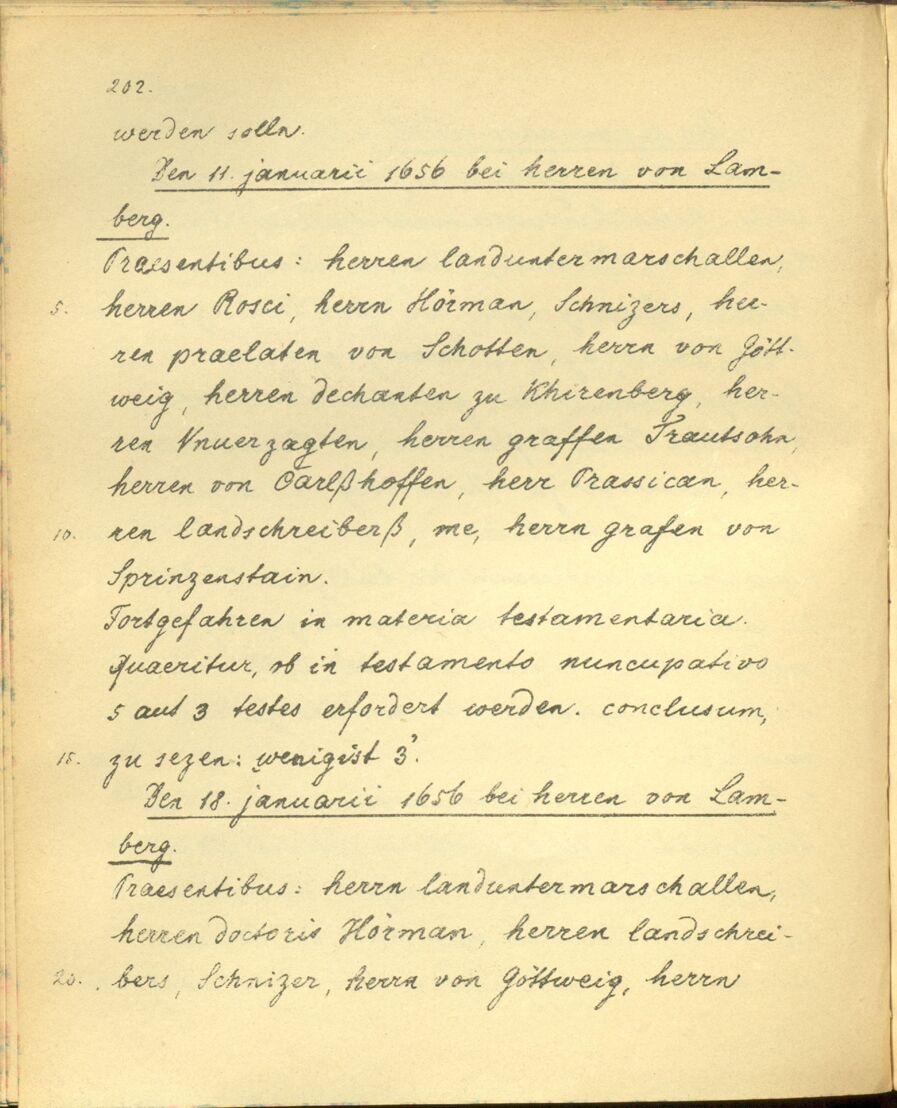 202.
werden solln.
Den 11. januarii 1656 bei herren von Lam-
berg.
Praesentibus: herren landuntermarschallen,
5. herren Rosci, herrn Hörman, Schnizers, her-
ren praelaten von Schotten, herrn von Gött-
weig, herren dechanten zu Khirenberg, her-
ren Vnuerzagten, herren graffen Trautsohn,
herren von Carlßhoffen, herr Prassican, her-
10. ren landschreiberß, me, herrn grafen von
Sprinzenstain.
Fortgefahren in materia testamentaria.
Quaeritur, ob in testamento nuncupativo
5 aut 3 testes erfordert werden. conclusum,
15. zu sezen: ‚wenigist 3‘.
Den 18. januarii 1656 bei herren von Lam-
berg.
Praesentibus: herrn landuntermarschallen,
herren doctoris Hörman, herren landschrei-
20. bers, Schnizer, herrn von Göttweig, herrn